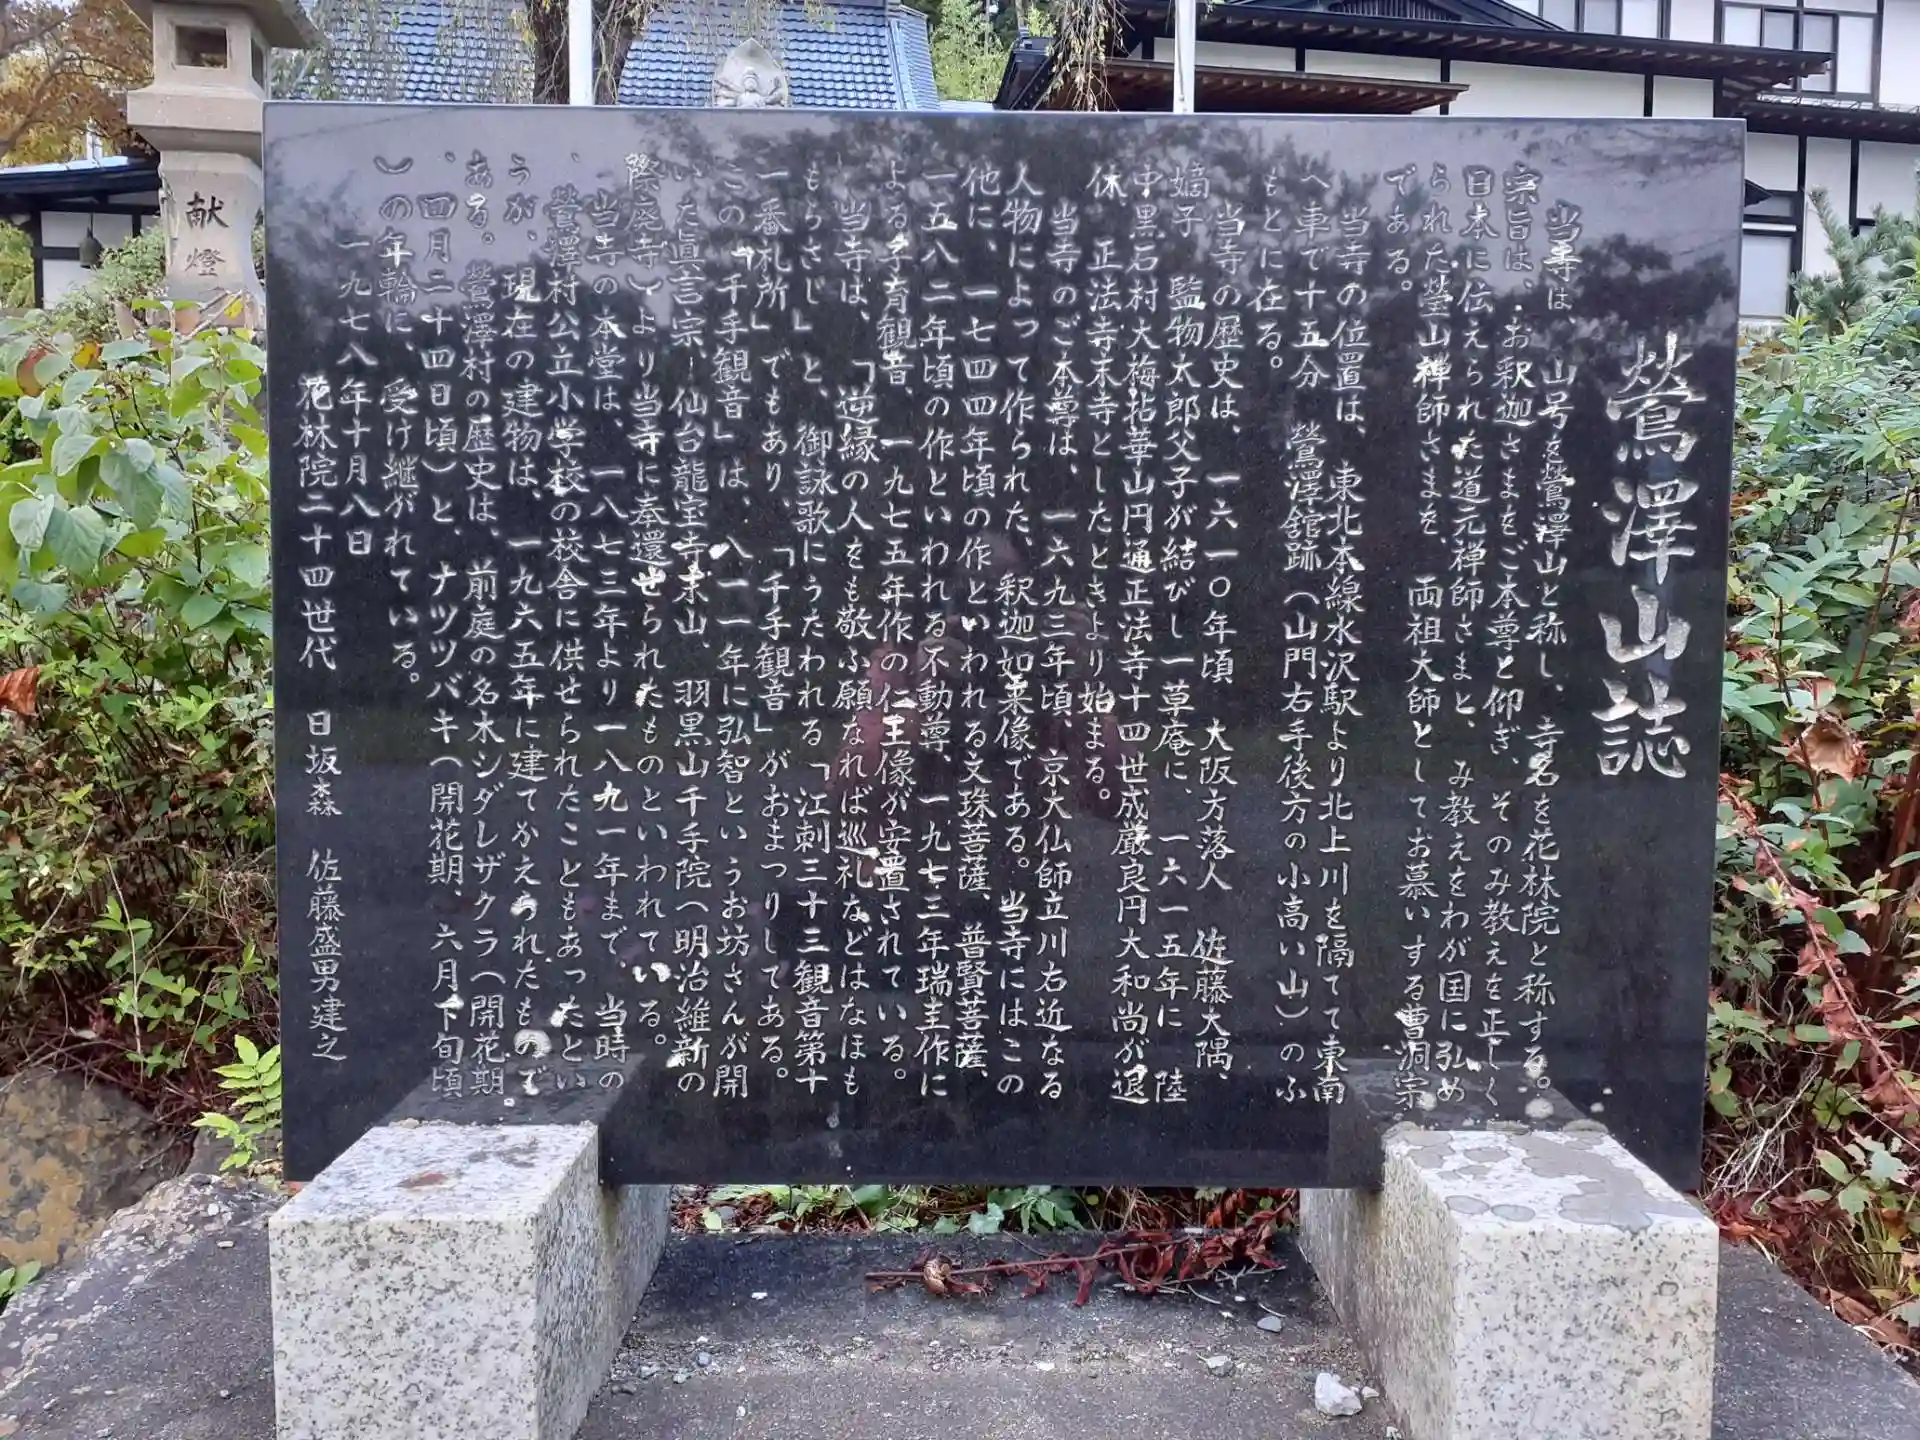 鶯澤山誌
当寺は、山号を鶯澤山と称し、寺名を花林院と称する。
宗旨は、お釈迦さまをご本尊と仰ぎ、そのみ教えを正しく
日本に伝えられた道元禅師さまと、み教えをわが国に弘め
られた瑩山禅師さまを、両祖大師としてお慕いする曹洞宗
である。
当寺の位置は、東北本線水沢駅より北上川を隔てて東南
へ車で十五分 鶯澤舘跡(山門右手後方の小高い山)のふ
もとに在る。
当寺の歴史は、一六一〇年頃 大阪方落人 佐藤大隅、
嫡子 監物太郎父子が結びし一草庵に、一六一五年に 陸
中黒石村大梅拈華山円通正法寺十四世成巌良円大和尚が退
休 正法寺末寺としたときより始まる。
当寺のご本尊は、一六九三年頃、京大仏師立川右近なる
人物によって作られた、釈迦如来像である。当寺にはこの
他に、一七四四年頃の作といわれる文珠菩薩、普賢菩薩、
一五八二年頃の作といわれる不動尊、一九七三年瑞圭作に
よる子育観音、一九七五年作の仁王像が安置されている。
当寺は、「逆縁の人をも敬ふ願なれば巡礼などはなほも
もらさじ」と、御詠歌にうたわれる「江刺三十三観音第十
一番札所」でもあり、「千手観音」がおまつりしてある。
この「千手観音」は、八一一年に弘智というお坊さんが開
いた眞言宗、仙台龍宝寺末山、羽黒山千手院(明治維新の
際廃寺)より当寺に奉還せられたものといわれている。
当寺の本堂は、一八七三年より一八九一年まで、当時の
鶯澤村公立小学校の校舎に供せられたこともあったとい
うが、現在の建物は、一九六五年に建てかえられたもので
ある。鶯澤村の歴史は、前庭の名木シダレザクラ(開花期
、四月二十四日頃)と、ナツツバキ(開花期、六月下旬頃
)の年輪に、受け継がれている。
一九七八年十月八日
花林院二十四世代 日坂森 佐藤盛男建之
献燈